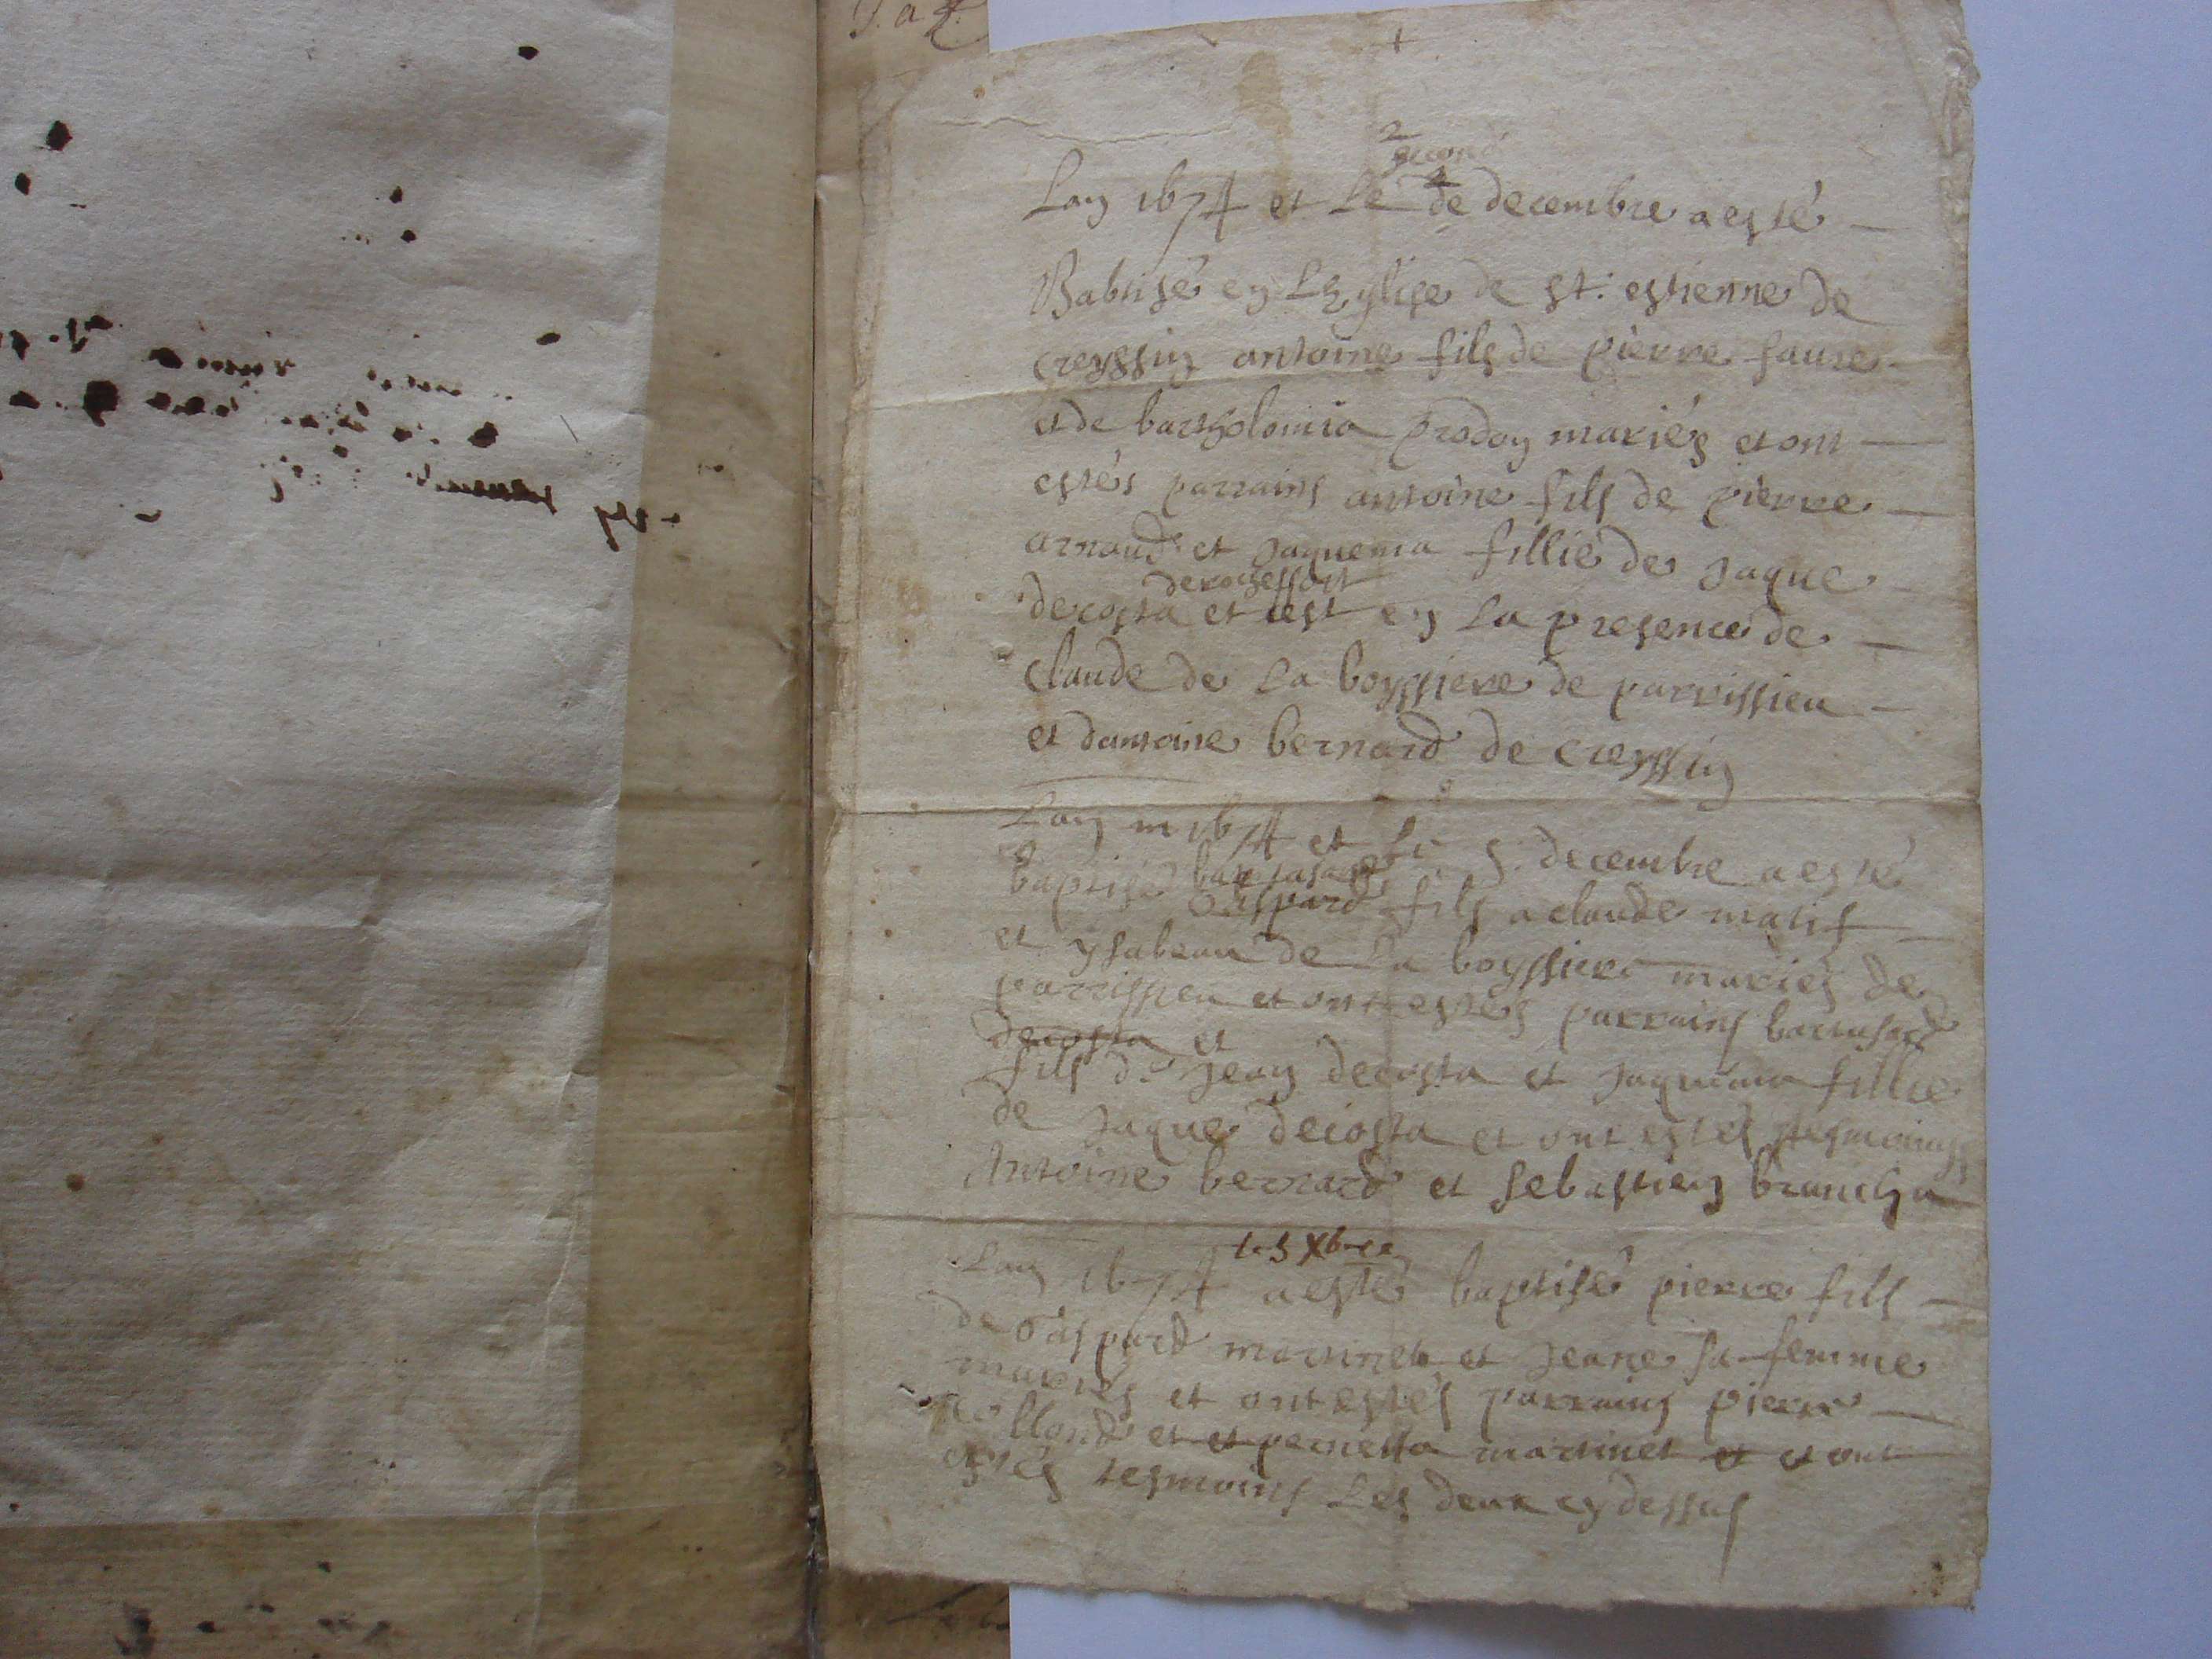 J. a
+
2
second
Lan 1674 et Le de decembre a esté
Babtisé en LEglise de St. estienne de
creyssin antoine fils de pierre faure
et de bartholomia prodon mariés et ont
estés parrains antoine fils de pierre
arnaud et Jaquema fillie de Jaque
derocheffort
decosta et cest en La presence de
claude de La boyssiere de parvissieu
et dantoine bernard de creyssin
Lan 1674 et Le 5 decembre a esté
baptisé
Gaspard fils a claude matif
et ysabeau de La boyssiere mariés de
parrissieu et ont estés parrains
decosta et
fils de Jean decosta et Jaquema fillie
de Jaque decosta et ont estés tesmoings
Antoine bernard et sebastien brancha
le 5 Xbre
Lan 1674 a esté baptisé pierre fils
de Gaspard martinet et Jeane sa femme
mariés et ont estés parrains pierre
et et pernetta martinet et et ont
estés tesmoins Les deux cy dessus